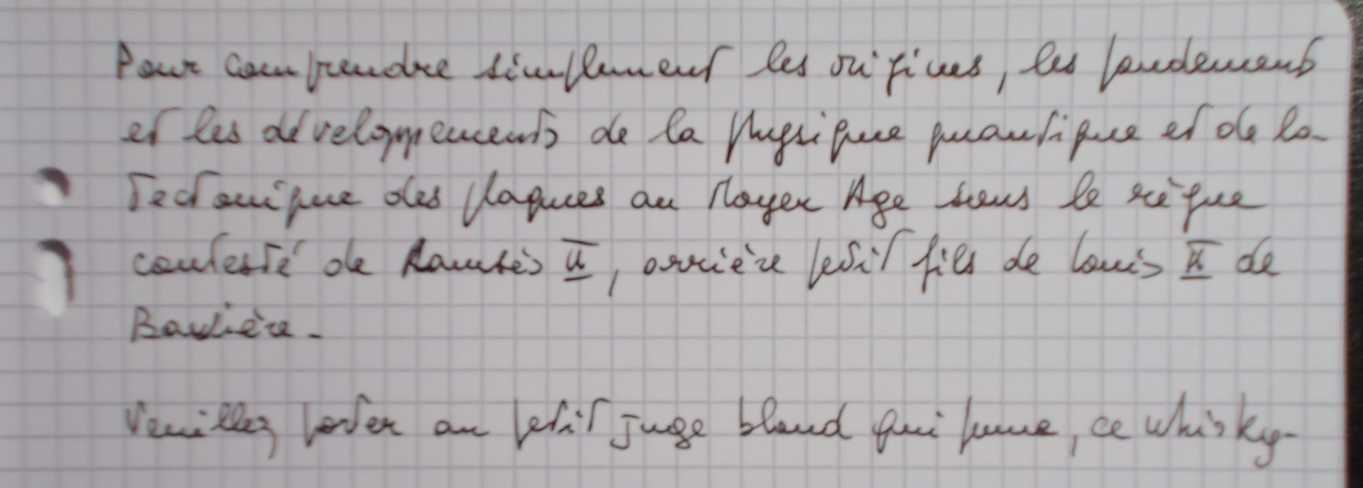 Pour comprendre simplement les origines, les fondements
et les développements de la physique quantique et de la
Tectonique des plaques au Moyen Age sous le règne
contesté de Ramsès II, arrière petit fils de Louis II de
Bavière.
Veuillez porter au petit juge blond qui fume, ce whisky.